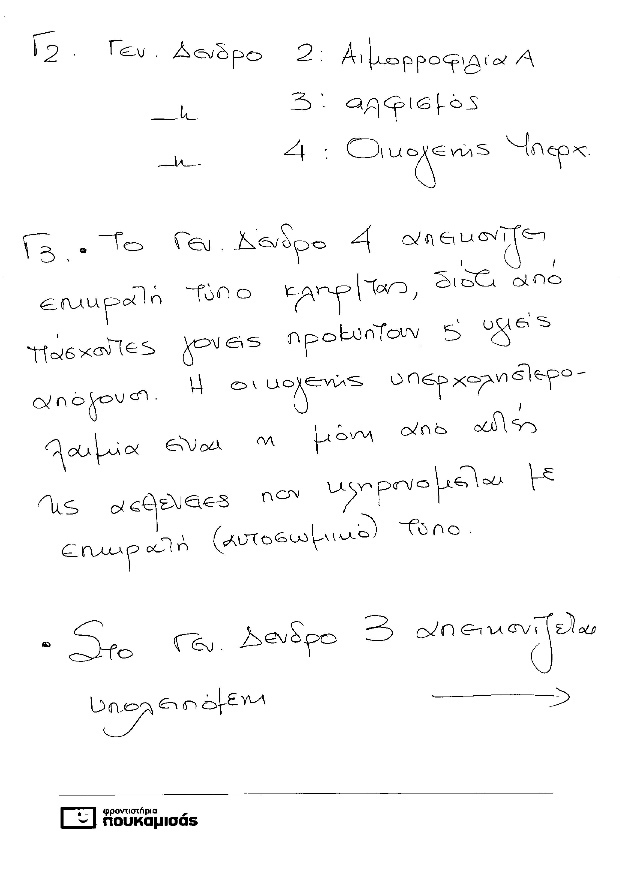 Γ2. Γεν. Δενδρο 2: Αιμορροφιλία Α
—〃 3: αλφισμός
—〃— 4: Οικογενής Υπερχ.
Γ3. • Το Γεν. Δένδρο 4 απεικονίζει
επικρατή τύπο κληρ/τας, διότι από
πάσχοντες γονείς προκύπτουν κ' υγιείς
απόγονοι. Η οικογενής υπερχοληστερο-
λαιμία είναι η μόνη από αυτές
τις ασθένειες που κληρονομείται με
επικρατή (αυτοσωμικό) τύπο.
• Στο Γεν. Δενδρο 3 απεικονίζεται
υπολειπόμενη →
φροντιστήρια
πουκαμισάς